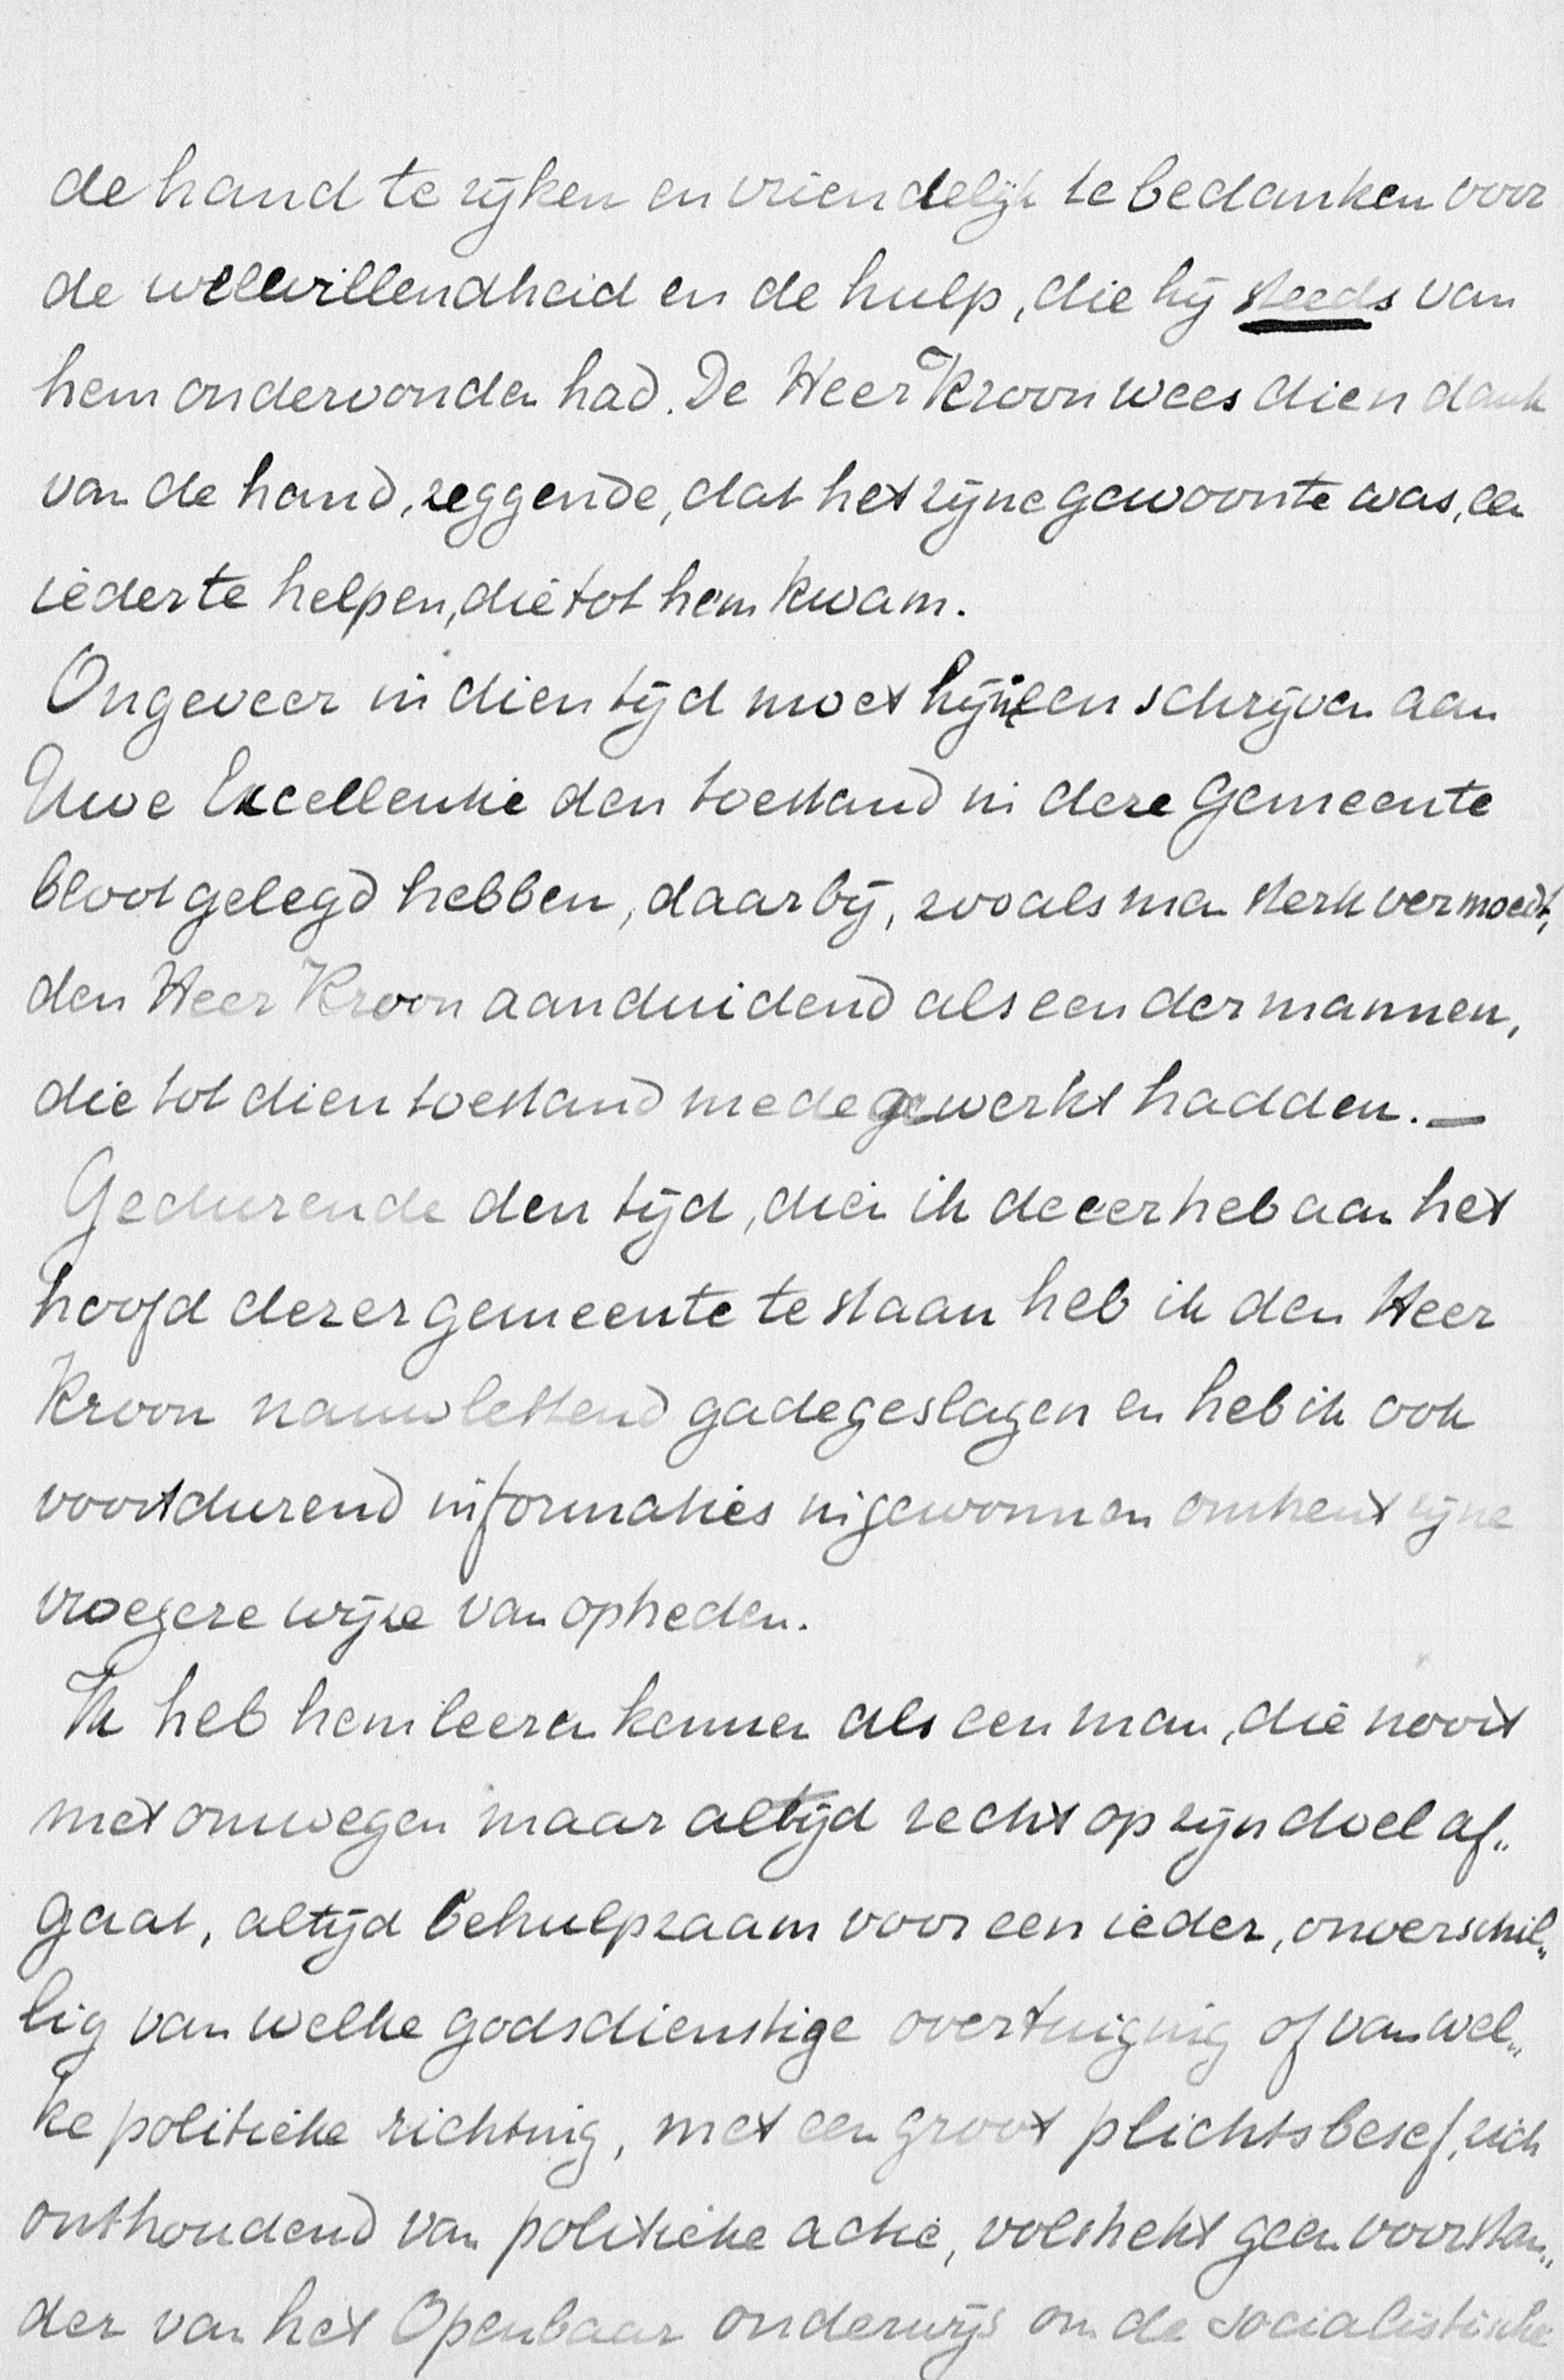 de hand te rijken en vriendelijk te bedanken voor
de welwillendheid en de hulp, die hij steeds van
hem ondervonden had. De Heer Kroon wees dien dank
van de hand, zeggende, dat het zijne gewoonte was, een
ieder te helpen, die tot hem kwam.
Ongeveer in dien tijd moet hij een schrijven aan
Uwe Excellentie den toestand in deze gemeente
blootgelegd hebben, daarbij, zooals men sterk vermoedt,
den Heer Kroon aanduidend als een der mannen,
die tot dien toestand medegewerkt hadden.—
Gedurende den tijd, dien ik de eer heb aan het
hoofd dezer gemeente te staan heb ik den Heer
Kroon nauwlettend gadegeslagen en heb ik ook
voortdurend informaties ingewonnen omtrent zijne
vroegere wijze van optreden.
Ik heb hem leeren kennen als een man, die nooit
met omwegen maar altijd recht op zijn doel af„
gaat, altijd behulpzaam voor een ieder, onverschil„
lig van welke godsdienstige overtuiging of van wel„
ke politieke richting, met een groot plichtsbesef, zich
onthoudend van politieke actie, volstrekt geen voorstan„
der van het Openbaar onderwijs en de socialistische